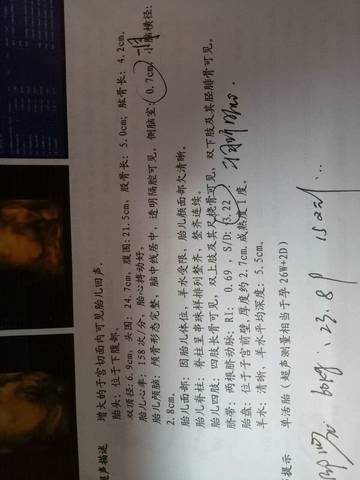 声描述
增大的子宫切面内可见胎儿回声.
胎头：位于下腹部.
双顶径：6.9cm, 头围：24.7cm, 腹围：21.5cm, 股骨长：5.0cm; 肱骨长：4.2cm.
胎儿心率：158次/分，胎心搏动好.
胎儿颅脑：颅骨形态完整，脑中线居中，透明隔腔可见，侧脑室：0.7cm, 小脑横径：
2.8cm.
胎儿面部：因胎儿体位，羊水受限，胎儿颜面部欠清晰.
胎儿脊柱：脊柱呈串珠样排列整齐，整齐连续.
胎儿四肢：四肢长骨可见，双上肢及其尺桡骨可见，双下肢及其胫腓骨可见.
脐带：两根脐动脉：RI：0.69，S/D：3.22
胎盘：位于子宫前壁，厚度约2.7cm,成熟度1度.
羊水：清晰，羊水平均深度：5.5cm.
提示
单活胎（超声测量相当于孕26W+2D）